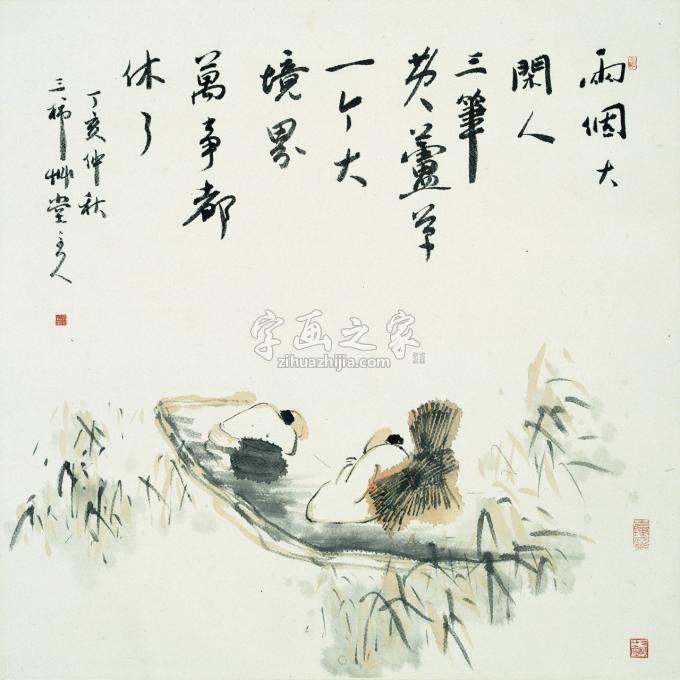 兩個大
閑人
三筆
黄蘆草
一个大
境界
萬事都
休了
丁亥仲秋
三柿艸堂主人
字画之家
zihuazhijia.com